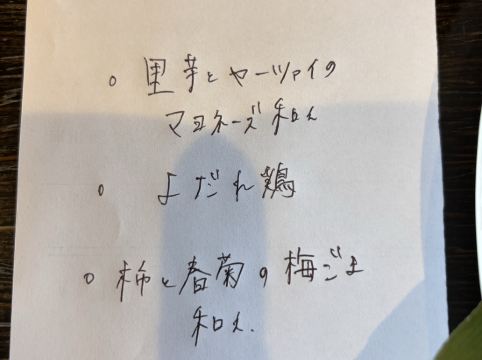 ○ 里芋とヤーツァイの
マヨネーズ和え
○ よだれ鶏
○ 柿と春菊の梅ごま
和え.